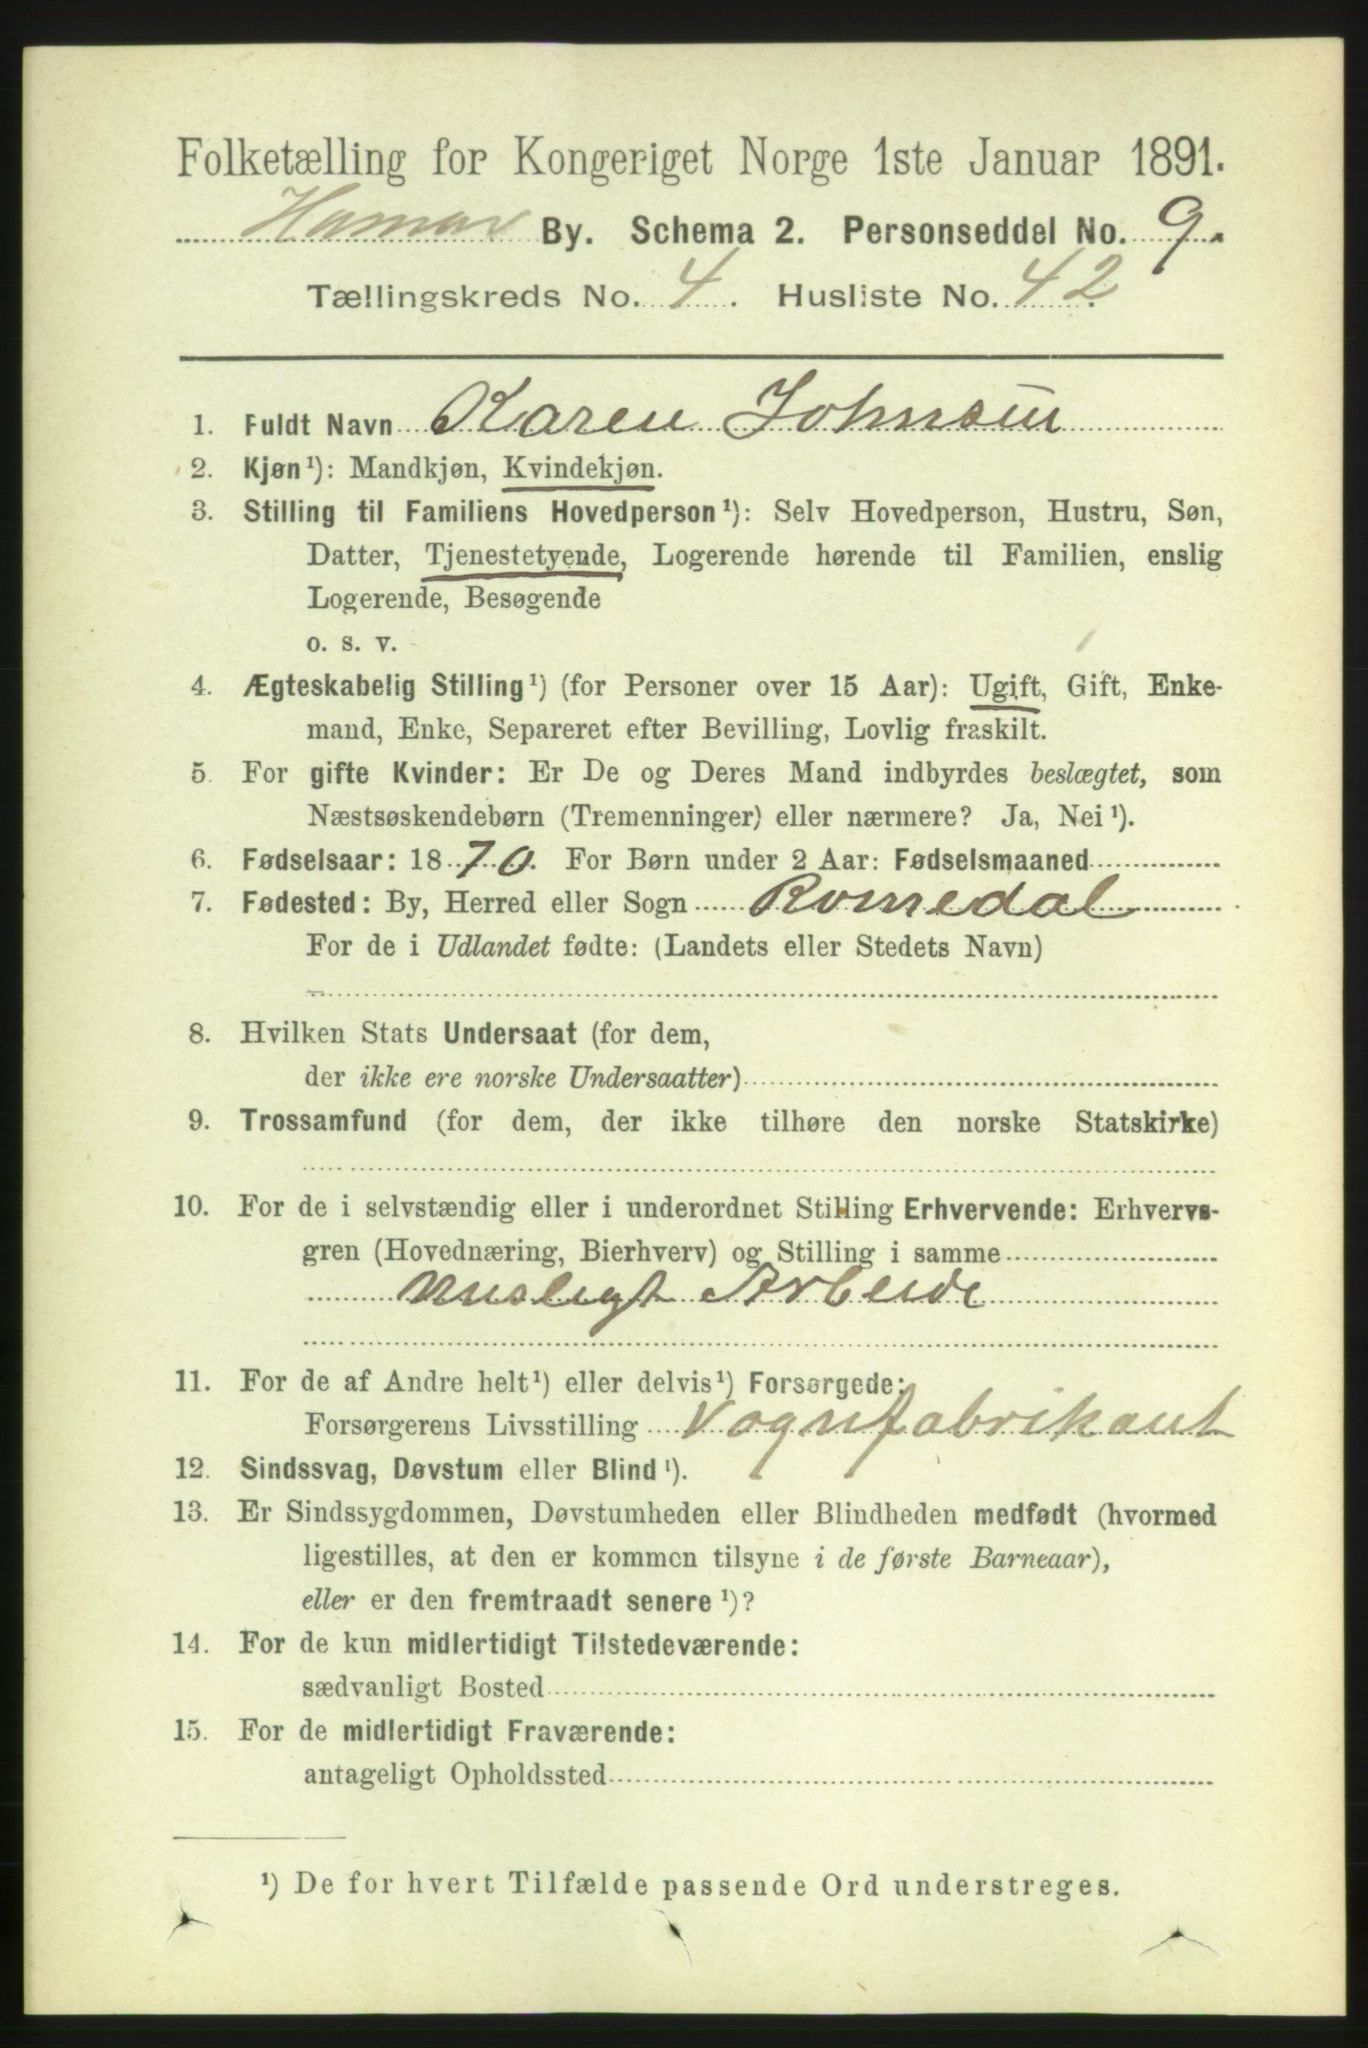 Folketælling for Kongeriget Norge 1ste Januar 1891.
Hamar By. Schema 2. Personseddel No. 9.
Tællingskreds No. 4. Husliste No. 42.
1. Fuldt Navn Karen Johnsen
2. Kjøn¹): Mandkjøn, Kvindekjøn.
3. Stilling til Familiens Hovedperson¹): Selv Hovedperson, Hustru, Søn,
Datter, Tjenestetyende, Logerende hørende til Familien, enslig
Logerende, Besøgende
o. s. v.
4. Ægteskabelig Stilling¹) (for Personer over 15 Aar): Ugift, Gift, Enke-
mand, Enke, Separeret efter Bevilling, Lovlig fraskilt.
5. For gifte Kvinder: Er De og Deres Mand indbyrdes beslægtet, som
Næstsøskendebørn (Tremenninger) eller nærmere? Ja, Nei¹).
6. Fødselsaar: 1870. For Børn under 2 Aar: Fødselsmaaned
7. Fødested: By, Herred eller Sogn Romedal
For de i Udlandet fødte: (Landets eller Stedets Navn)
8. Hvilken Stats Undersaat (for dem,
der ikke ere norske Undersaatter)
9. Trossamfund (for dem, der ikke tilhøre den norske Statskirke)
10. For de i selvstændig eller i underordnet Stilling Erhvervende: Erhvervs-
gren (Hovednæring, Bierhverv) og Stilling i samme
Husligt Arbeide
11. For de af Andre helt¹) eller delvis¹) Forsørgede:
Forsørgerens Livsstilling Vognfabrikant
12. Sindssvag, Døvstum eller Blind¹).
13. Er Sindssygdommen, Døvstumheden eller Blindheden medfødt (hvormed
ligestilles, at den er kommen tilsyne i de første Barneaar),
eller er den fremtraadt senere¹)?
14. For de kun midlertidigt Tilstedeværende:
sædvanligt Bosted
15. For de midlertidigt Fraværende:
antageligt Opholdssted
¹) De for hvert Tilfælde passende Ord understreges.